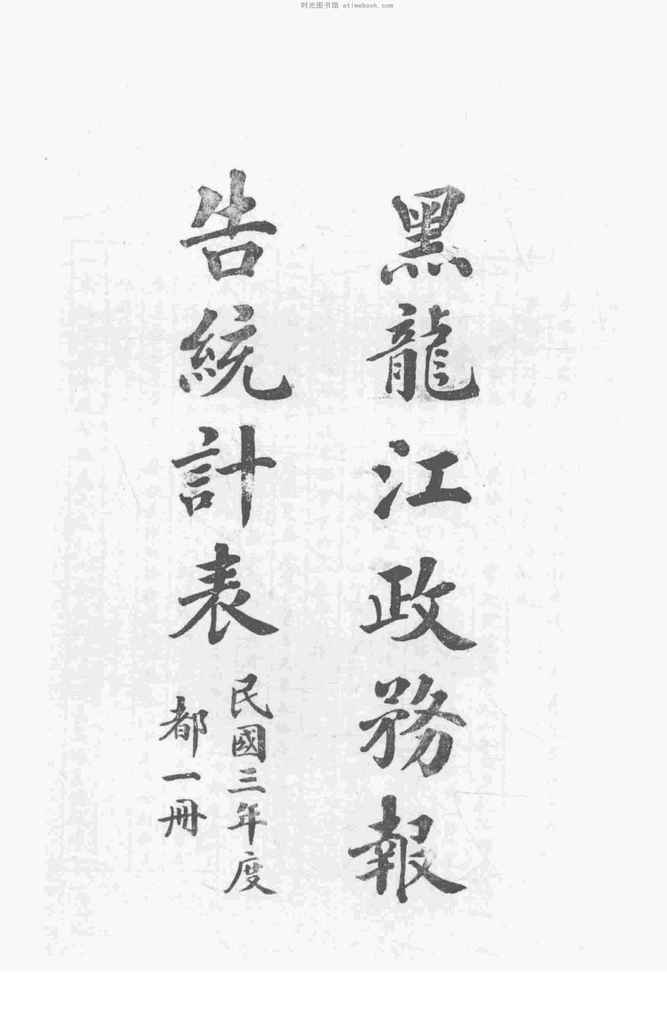 时光图书馆 atimebook.com
黑龍江政務報
告統計表
民國三年度
都一冊